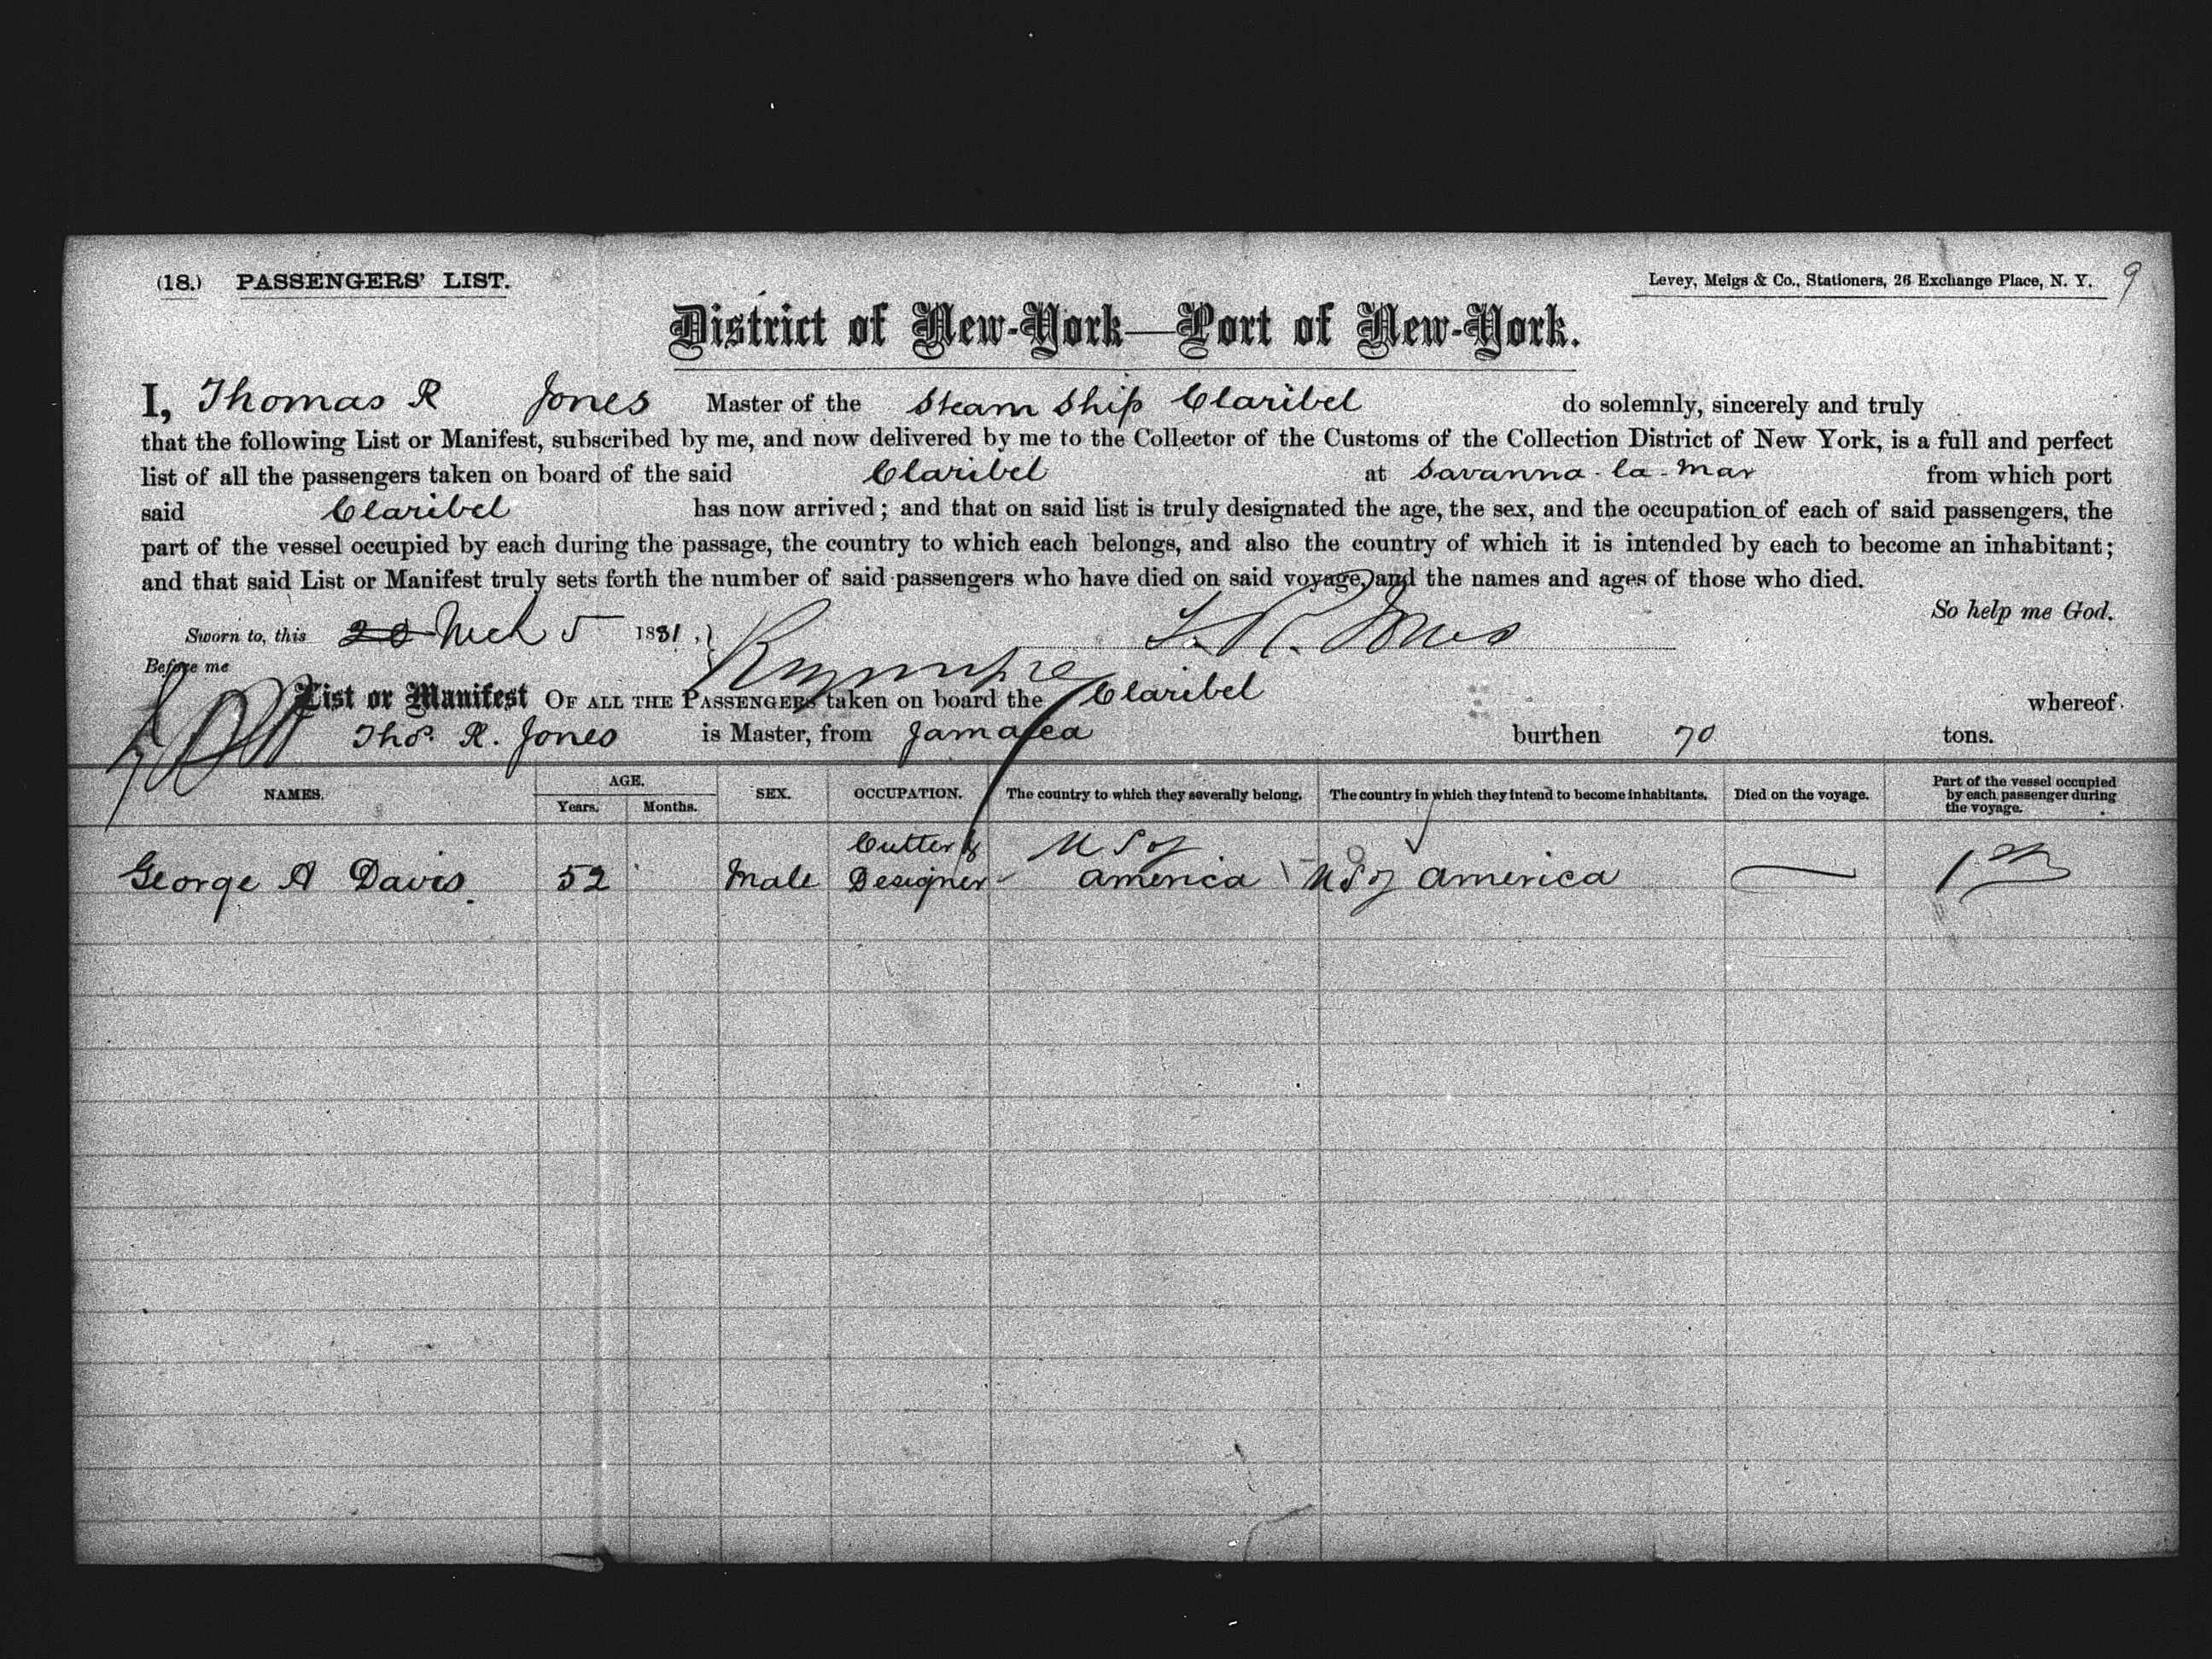 (18.) PASSENGERS' LIST.
Levey, Meigs & Co., Stationers, 26 Exchange Place, N. Y. 9
District of New-York—Port of New-York.
I, Thomas R Jones Master of the Steam Ship Claribel do solemnly, sincerely and truly
that the following List or Manifest, subscribed by me, and now delivered by me to the Collector of the Customs of the Collection District of New York, is a full and perfect
list of all the passengers taken on board of the said Claribel at Savanna-la-Mar from which port
said Claribel has now arrived; and that on said list is truly designated the age, the sex, and the occupation of each of said passengers, the
part of the vessel occupied by each during the passage, the country to which each belongs, and also the country of which it is intended by each to become an inhabitant;
and that said List or Manifest truly sets forth the number of said passengers who have died on said voyage, and the names and ages of those who died.
So help me God.
Sworn to, this Mch 5 1881, T. R. Jones
Before me
List or Manifest OF ALL THE PASSENGERS taken on board the Claribel whereof
Thos. R. Jones is Master, from Jamaica burthen 70 tons.
NAMES. AGE. Years. Months. SEX. OCCUPATION. The country to which they severally belong. The country in which they intend to become inhabitants. Died on the voyage. Part of the vessel occupied by each passenger during the voyage.
George A Davis. 52 Male Cutter & Designer U S of America U S of America